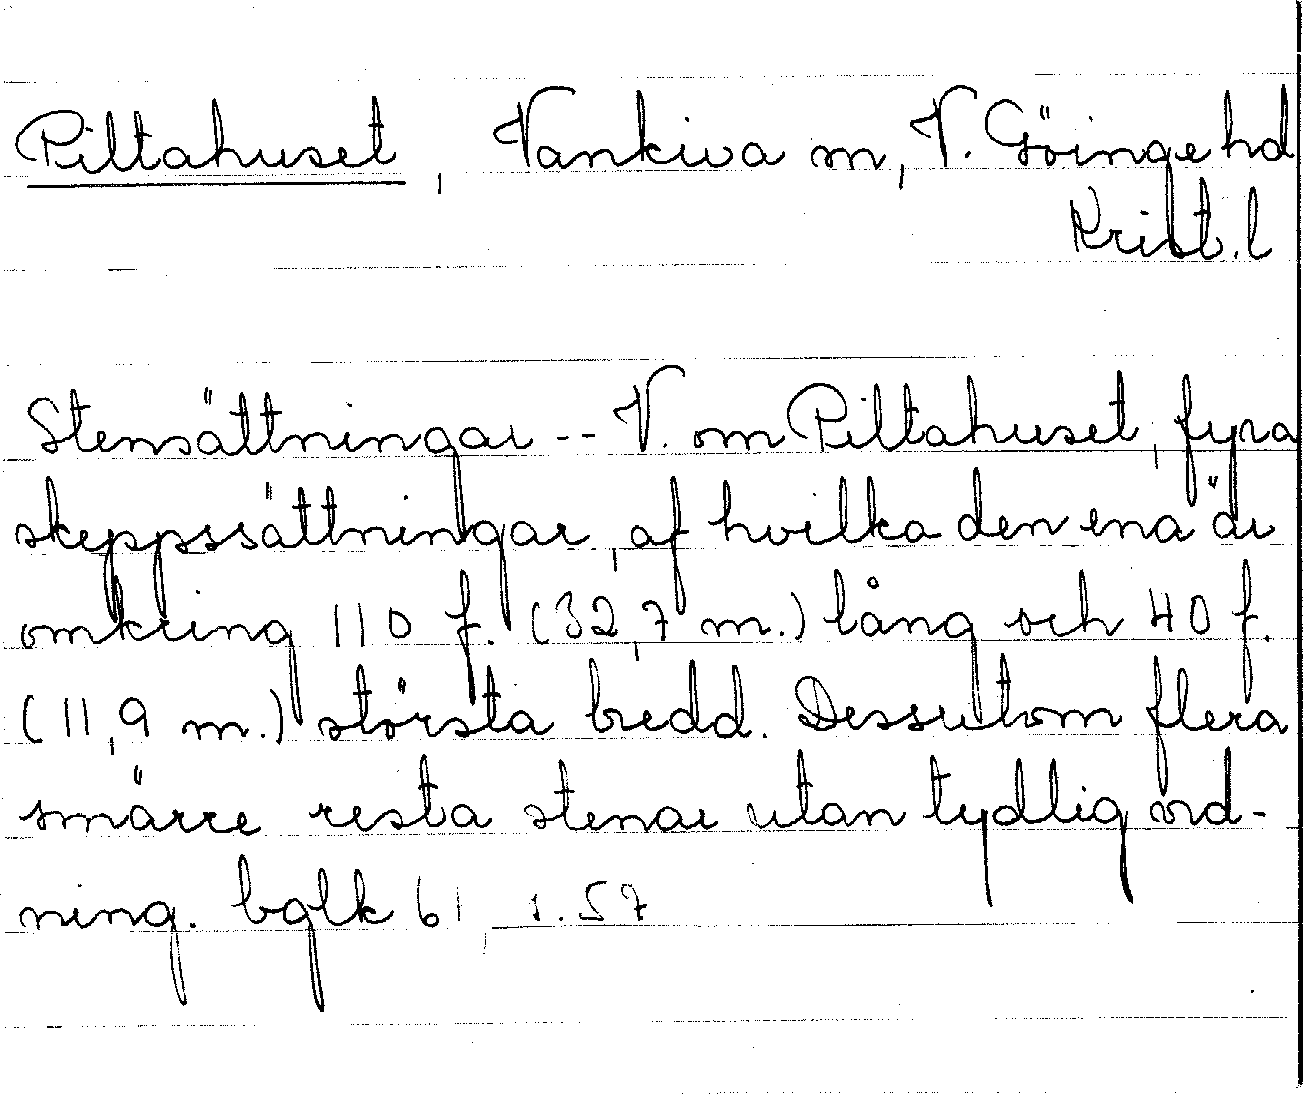 Piltahuset, Vankiva sn, V. Göinge hd
Krist. l
Stensättningar -- V. om Piltahuset, fyra
skeppssättningar, af hvilka den ena är
omkring 110 f. (32,7 m.) lång och 40 f.
(11,9 m.) största bredd. Dessutom flera
smärre resta stenar utan tydlig ord-
ning. bglk 61, s. 57